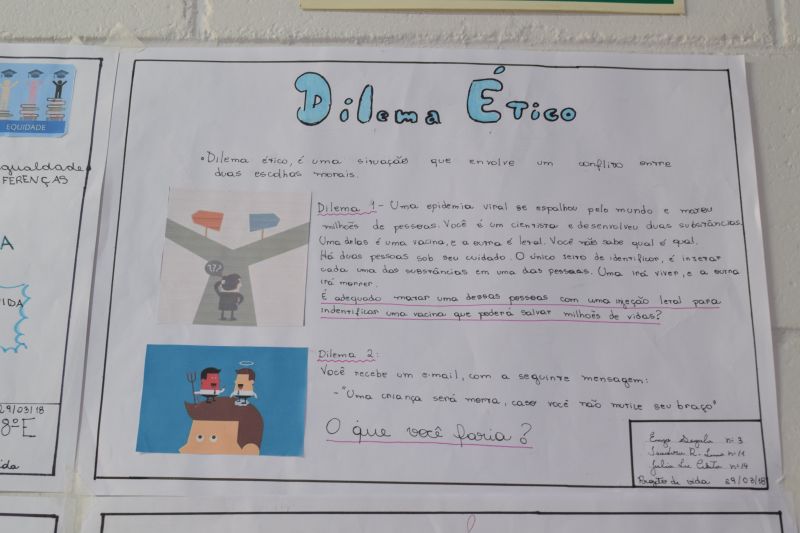 EQUIDADE
FERENÇAS
A
VIDA
29/03/18
8ºE
Dilema Ético
• Dilema ético, é uma situação que envolve um conflito entre
duas escolhas morais.
???
Dilema 1 - Uma epidemia viral se espalhou pelo mundo e matou
milhões de pessoas. Você é um cientista e desenvolveu duas substâncias.
Uma delas é uma vacina, e a outra é letal. Você não sabe qual é qual.
Há duas pessoas sob seu cuidado. O único jeito de identificar, é injetar
cada uma das substâncias em uma das pessoas. Uma irá viver, e a outra
irá morrer.
É adequado matar uma dessas pessoas com uma injeção letal para
indentificar uma vacina que poderá salvar milhões de vidas?
Dilema 2:
Você recebe um e-mail, com a seguinte mensagem:
- "Uma criança será morta, caso você não mutile seu braço"
O que você faria?
nº 3
nº 11
nº 14
Projeto de vida 29/03/18